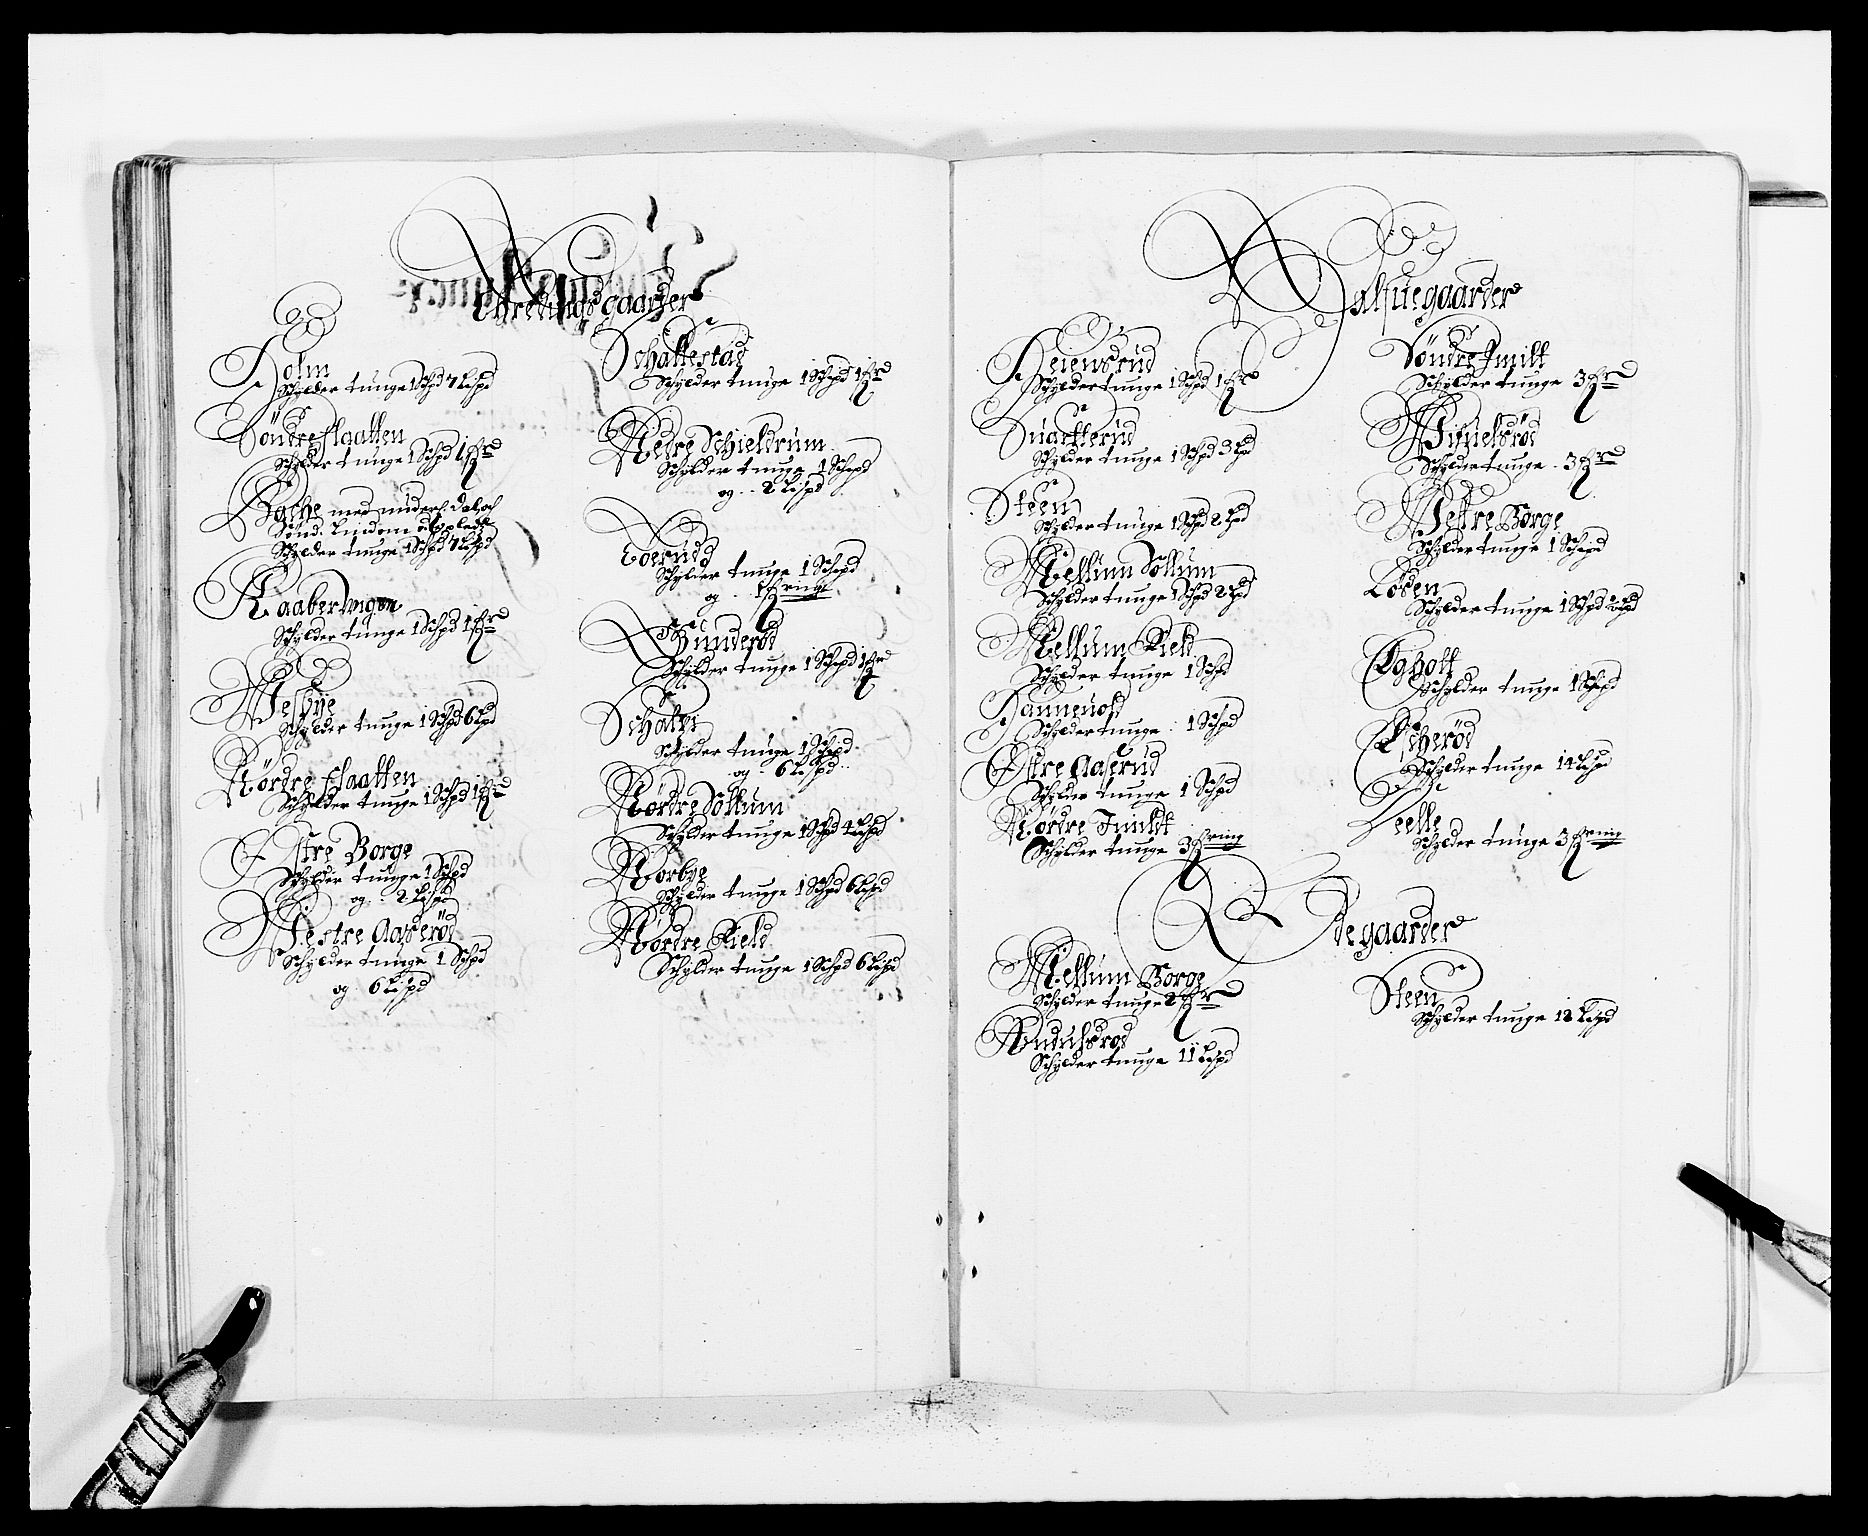 Holm
Schylder tunge 1 Schpd 7 Lispd
Söndre flaatten
Schylder tunge 1 Schpd 1 fr
Bache med underl. dal och
Sönd. Lindom ödepladtz
Schylder tunge 1 Schpd 7 Lispd
Raabervigen
Schylder tunge 1 Schpd 1 fr
Wesbye
Schylder tunge 1 Schpd 6 Lpd
Nördre flaatten
Schylder tunge 1 Schpd 1 fr
Östre Borge
Schylder tunge 1 Schpd
og 2 Lispd
Westre Aaseröd
Schylder tunge 1 Schpd
og 6 Lispd
Schattestad
Schylder tunge 1 Schpd 1 fr
Nedre Schieldrum
Schylder tunge 1 Schpd
og 2 Lispd
Schylder tunge 1 Schpd
og 1 fring
Gunderöd
Schylder tunge 1 Schpd 1 fr
Schatvi
Schylder tunge 1 Schpd
og 6 Lispd
Nördre Sollum
Schylder tunge 1 Schpd 4 Lispd
Norbye
Schylder tunge 1 Schpd 6 Lispd
Nordre Kield
Schylder tunge 1 Schpd 6 Lispd
Halfuegaarder
Heiensrud
Schylder tunge 1 Schpd 1 fr
Suartterud
Schylder tunge 1 Schpd 3 Lpd
Steen
Schylder tunge 1 Schpd 2 Lpd
Mellum Sollum
Schylder tunge 1 Schpd 2 Lpd
Mellum Kield
Schylder tunge 1 Schpd
Hannevold
Schylder tunge 1 Schpd
Östre Aaserud
Schylder tunge 1 Schpd
Nördre Jmildt
Schylder tunge 3 fring
Söndre Jmilt
Schylder tunge 3 fr
Schylder tunge 3 fr
Westre Borge
Schylder tunge 1 Schpd
Löden
Schylder tunge 1 Schpd 2 Lpd
Egholt
Schylder tunge 1 Schpd
Escheröd
Schylder tunge 14 Lispd
Schylder tunge 3 fring
Ödegaarder
Mellum Borge
Schylder tunge 2 fr
Schylder tunge 11 Lispd
Steen
Schylder tunge 12 Lispd